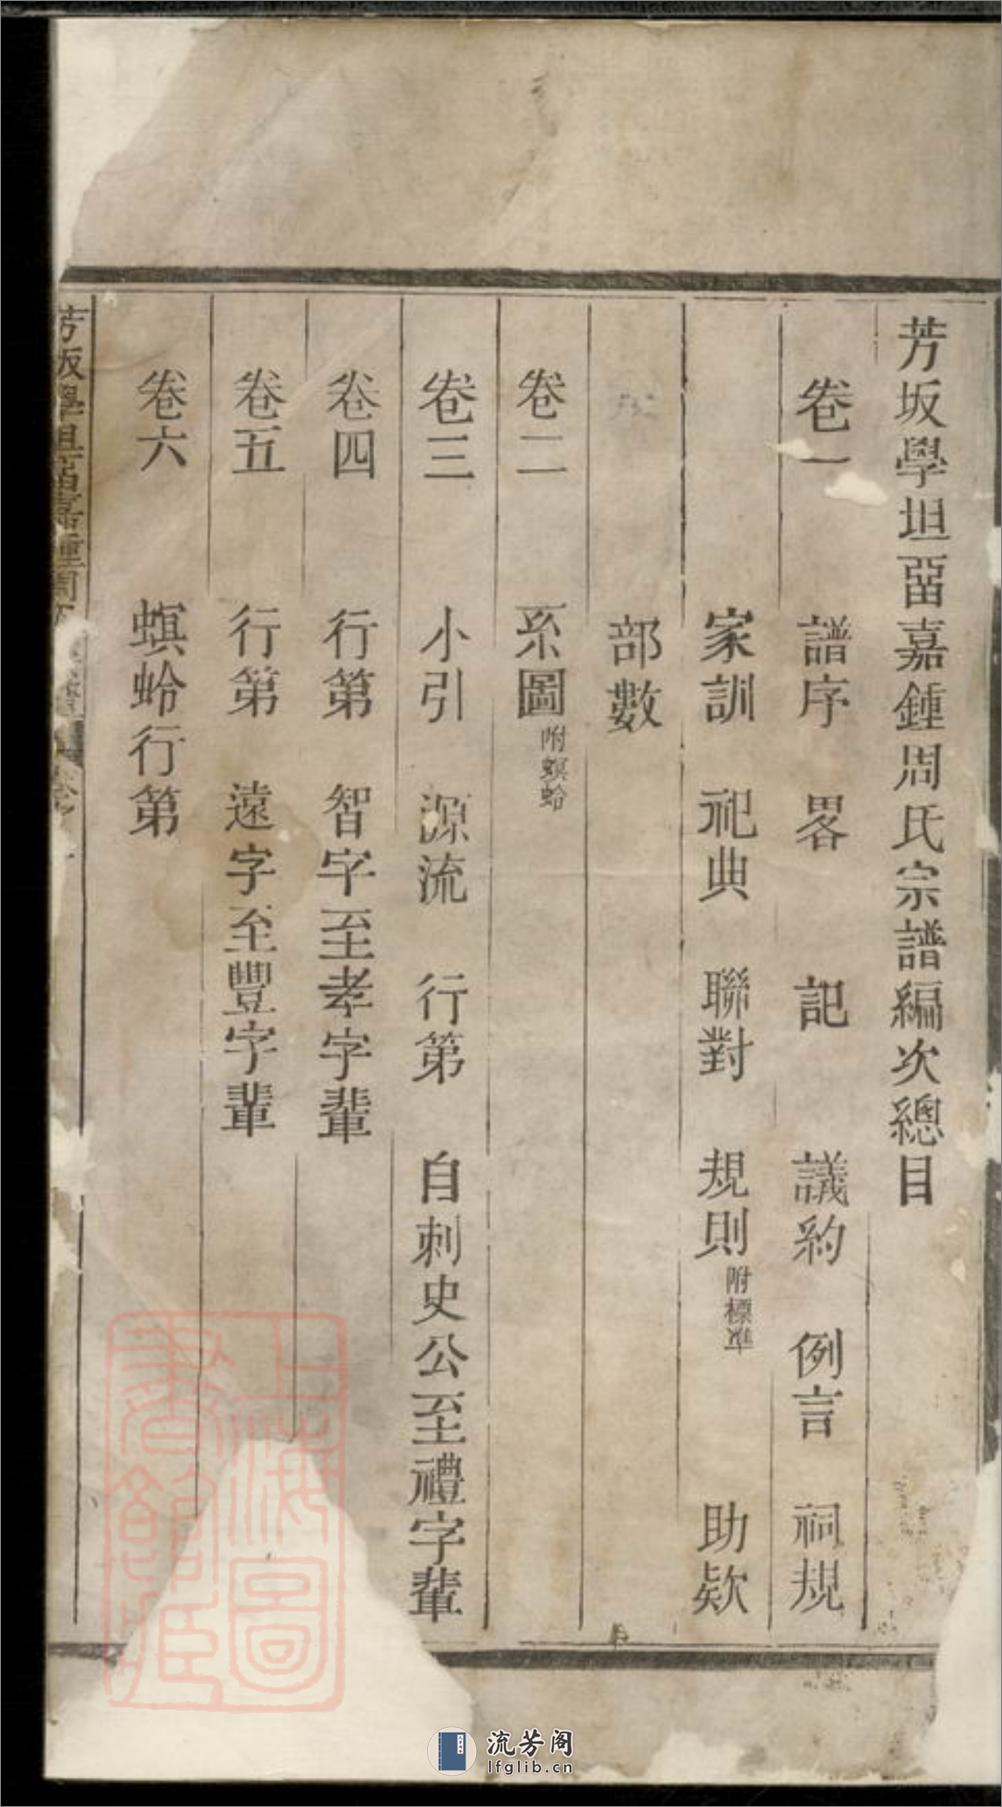 芳坂學坦畱嘉鍾周氏宗譜編次總目
卷一 譜序 畧 記 議約 例言 祠規
家訓 祀典 聯對 規則附標準 助欵
部數
卷二 系圖附螟蛉
卷三 小引 源流 行第 自刺史公至禮字輩
卷四 行第 智字至孝字輩
卷五 行第 遠字至豐字輩
卷六 螟蛉行第
芳坂學坦畱嘉鍾周
上海圖書館藏
流芳阁
lfglib.cn